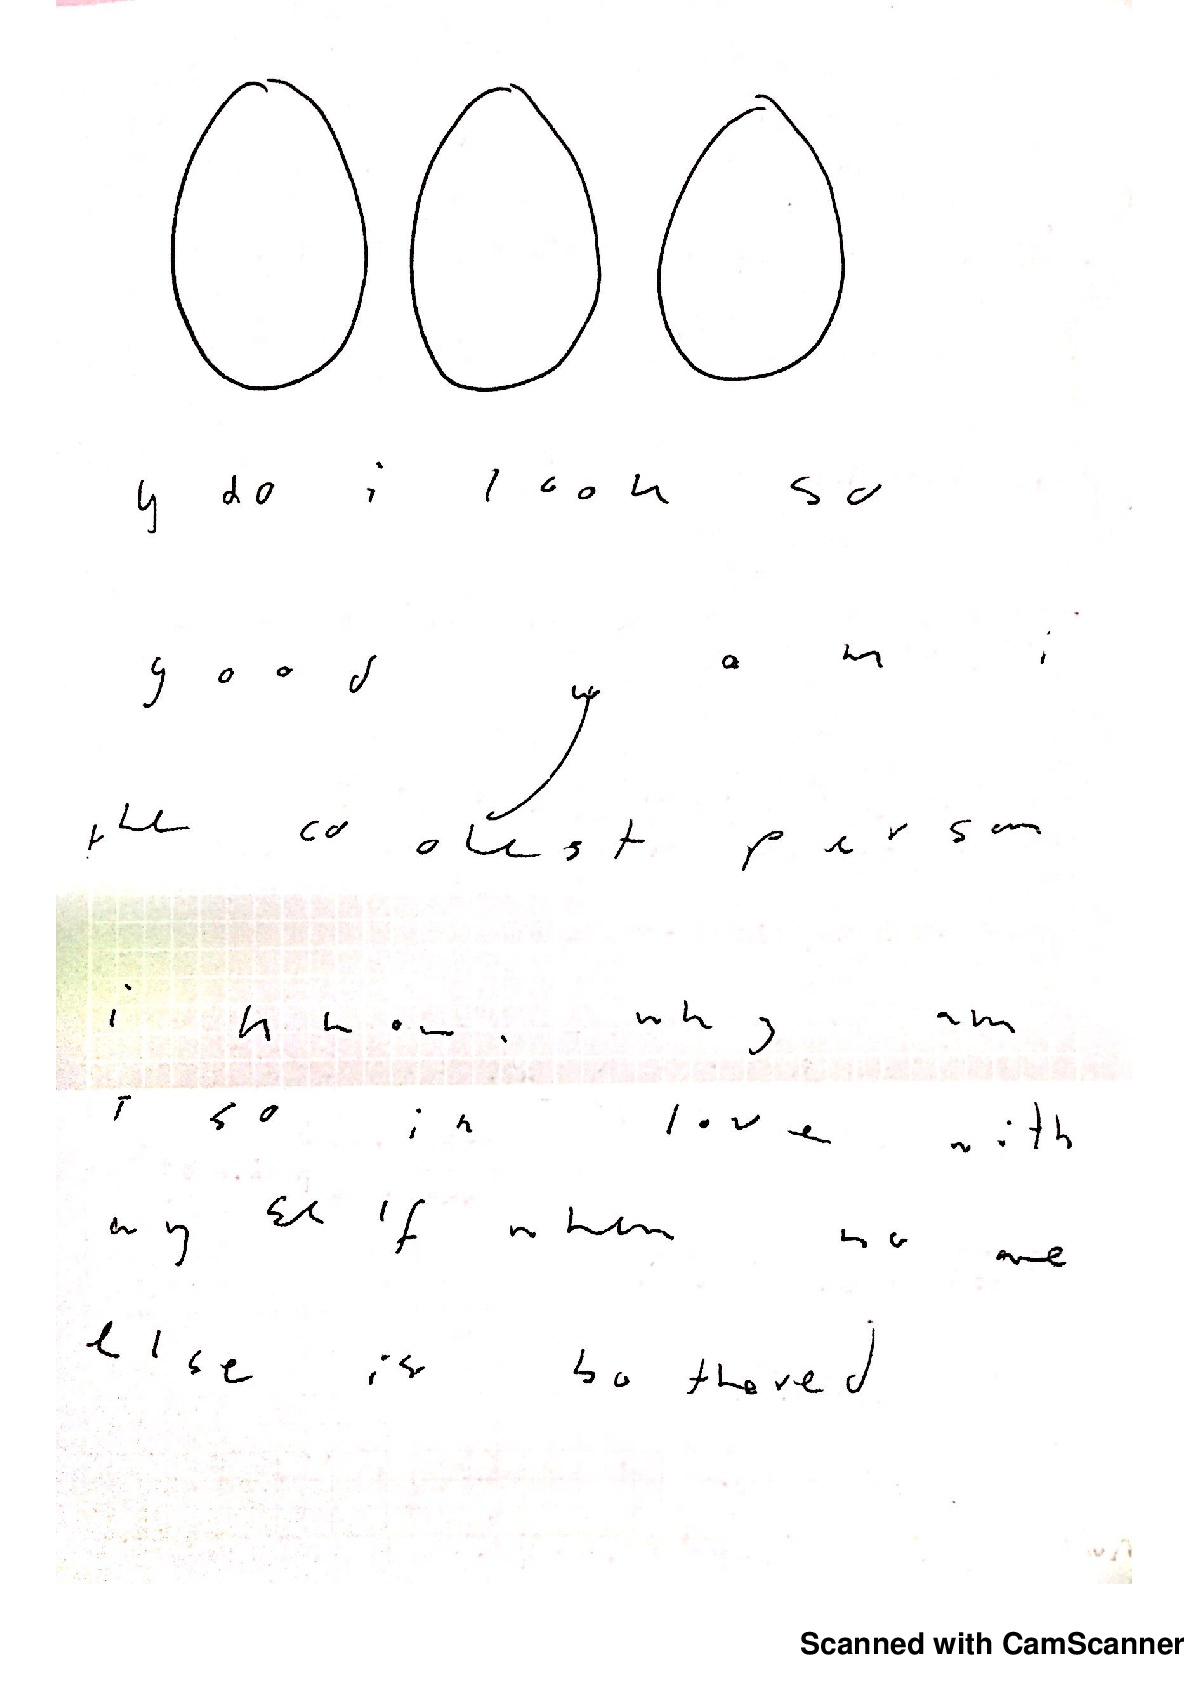 y do i look so
good y am i
the coolest person
i know. why am
I so in love with
my self when no one
else is bothered
Scanned with CamScanner